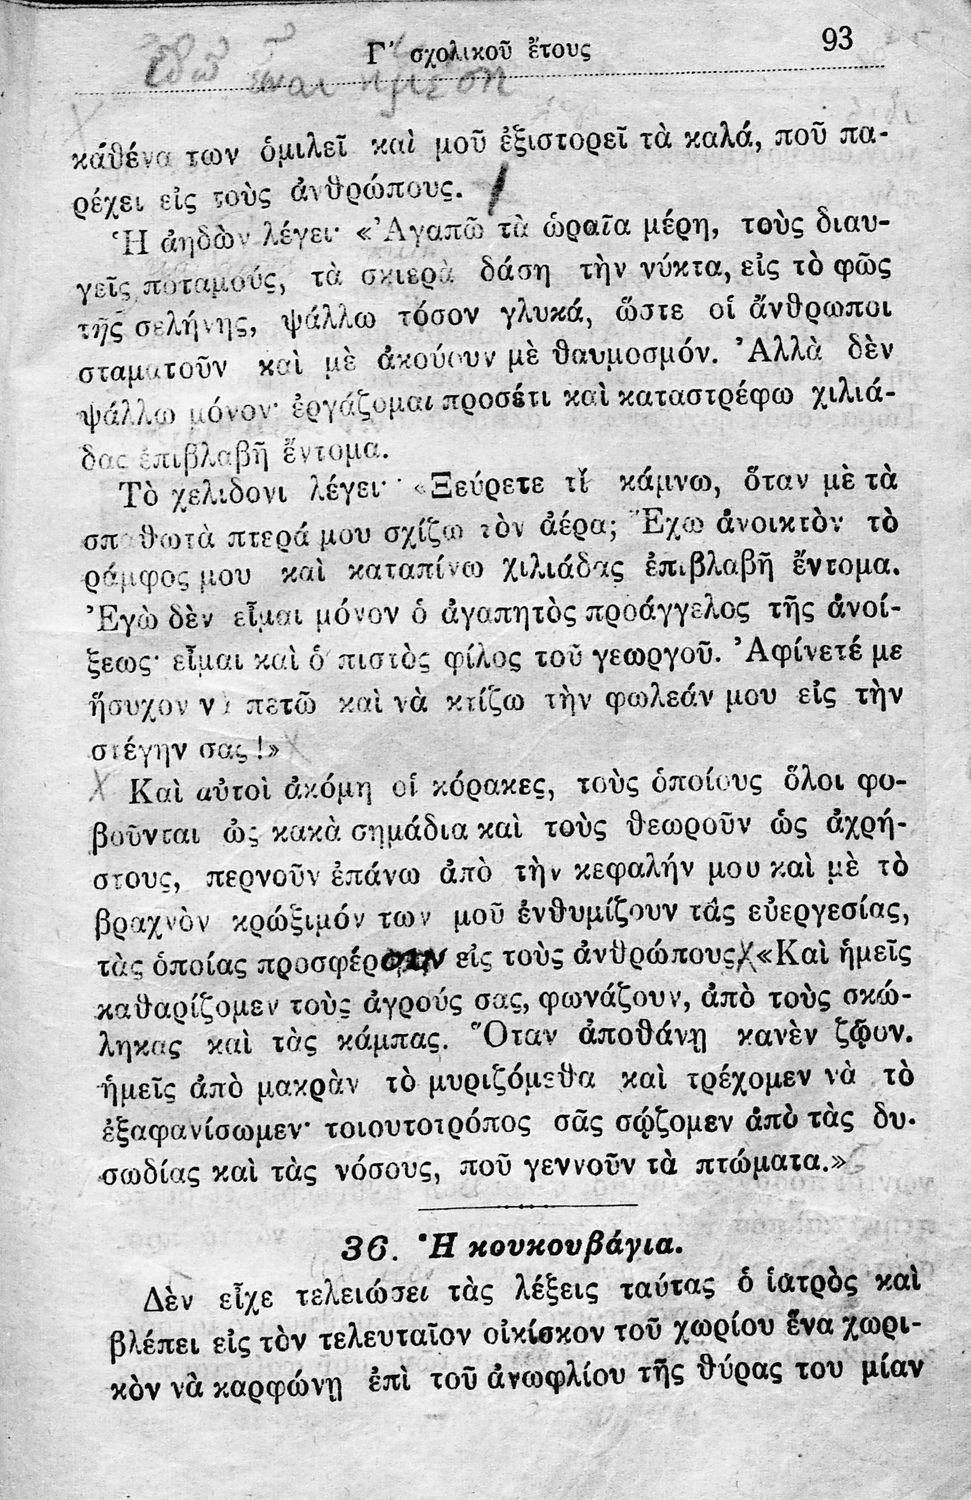 Γʹ σχολικοῦ ἔτους 93
ἐδῶ εἶναι ἡ μέση
κάθένα των ὁμιλεῖ καὶ μοῦ ἐξιστορεῖ τὰ καλά, ποῦ πα-
ρέχει εἰς τοὺς ἀνθρώπους.
Ἡ ἀηδὼν λέγει· «Ἀγαπῶ τὰ ὡραῖα μέρη, τοὺς διαυ-
γεῖς ποταμούς, τὰ σκιερὰ δάση τὴν νύκτα, εἰς τὸ φῶς
τῆς σελήνης, ψάλλω τόσον γλυκά, ὥστε οἱ ἄνθρωποι
σταματοῦν καὶ μὲ ἀκούουν μὲ θαυμοσμόν. Ἀλλὰ δὲν
ψάλλω μόνον· ἐργάζομαι προσέτι καὶ καταστρέφω χιλιά-
δας ἐπιβλαβῆ ἔντομα.
Τὸ χελιδονι λέγει· «Ξεύρετε τί κάμνω, ὅταν μὲ τὰ
σπαθωτὰ πτερά μου σχίζω τὸν ἀέρα; Ἔχω ἀνοικτὸν τὸ
ράμφος μου καὶ καταπίνω χιλιάδας ἐπιβλαβῆ ἔντομα.
Ἐγὼ δὲν εἶμαι μόνον ὁ ἀγαπητὸς προάγγελος τῆς ἀνοί-
ξεως· εἶμαι καὶ ὁ πιστὸς φίλος τοῦ γεωργοῦ. Ἀφίνετέ με
ἥσυχον νὰ πετῶ καὶ νὰ κτίζω τὴν φωλεάν μου εἰς τὴν
στέγην σας!»
Καὶ αὐτοὶ ἀκόμη οἱ κόρακες, τοὺς ὁποίους ὅλοι φο-
βοῦνται ὡς κακὰ σημάδια καὶ τοὺς θεωροῦν ὡς ἀχρή-
στους, περνοῦν ἐπάνω ἀπὸ τὴν κεφαλήν μου καὶ μὲ τὸ
βραχνὸν κρώξιμόν των μοῦ ἐνθυμίζουν τὰς εὐεργεσίας,
τὰς ὁποίας προσφέρουν εἰς τοὺς ἀνθρώπους «Καὶ ἡμεῖς
καθαρίζομεν τοὺς ἀγρούς σας, φωνάζουν, ἀπὸ τοὺς σκώ-
ληκας καὶ τὰς κάμπας. Ὅταν ἀποθάνῃ κανὲν ζῷον.
ἡμεῖς ἀπὸ μακρὰν τὸ μυριζόμεθα καὶ τρέχομεν νὰ τὸ
ἐξαφανίσωμεν· τοιουτοτρόπος σᾶς σῴζομεν ἀπὸ τὰς δυ-
σωδίας καὶ τὰς νόσους, ποῦ γεννοῦν τὰ πτώματα.»
36. Ἡ κουκουβάγια.
Δὲν εἶχε τελειώσει τὰς λέξεις ταύτας ὁ ἰατρὸς καὶ
βλέπει εἰς τὸν τελευταῖον οἰκίσκον τοῦ χωρίου ἕνα χωρι-
κὸν νὰ καρφώνῃ ἐπὶ τοῦ ἀνωφλίου τῆς θύρας του μίαν